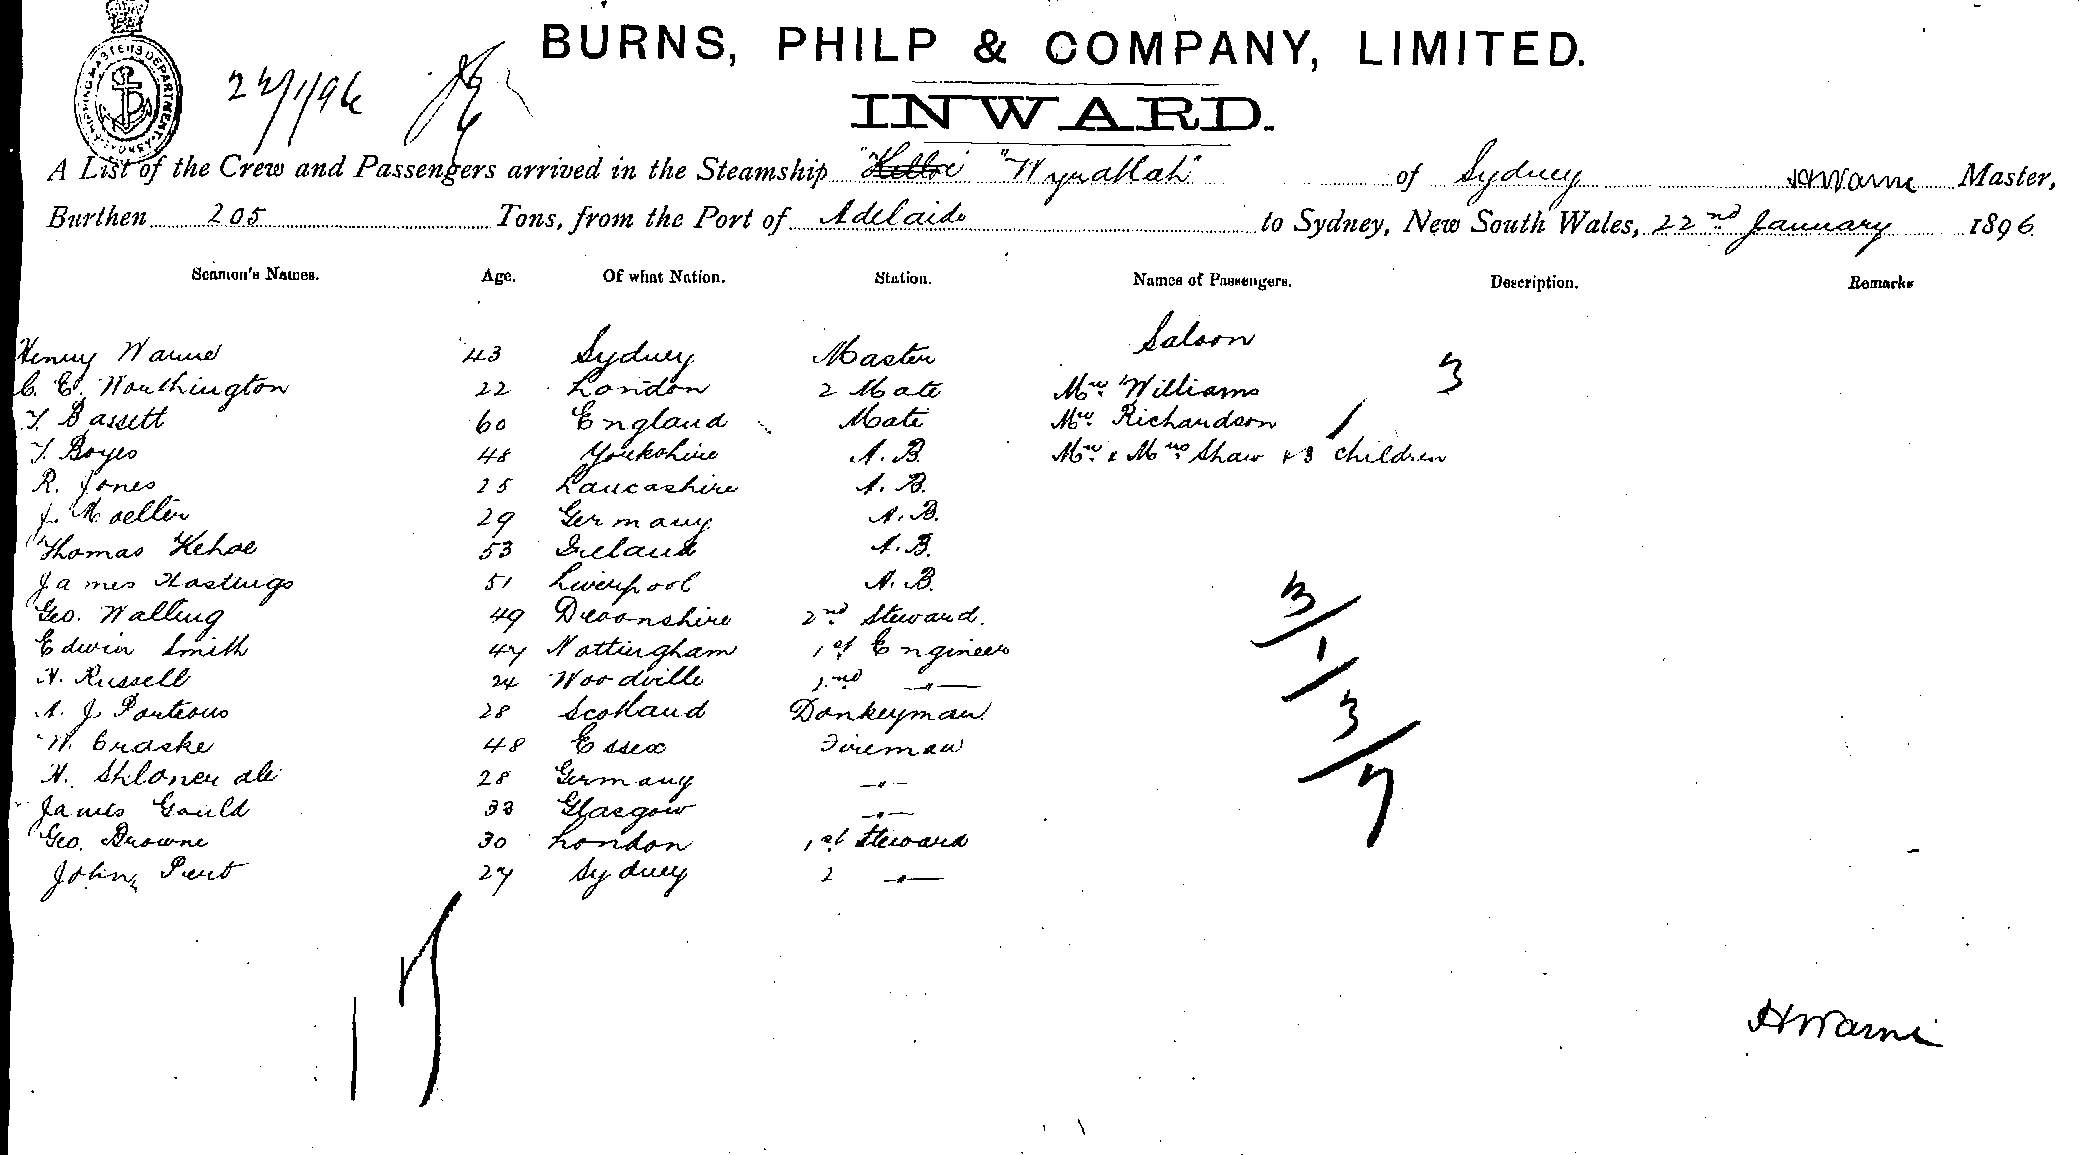 SHIPPING MASTER'S DEPARTMENT SYDNEY
22/1/96
BURNS, PHILP & COMPANY, LIMITED.
INWARD.
A List of the Crew and Passengers arrived in the Steamship "Wyrallah" of Sydney H Warne Master,
Burthen 205 Tons, from the Port of Adelaide to Sydney, New South Wales, 22nd January 1896
Seamen's Names. Age. Of what Nation. Station. Names of Passengers. Description. Remarks
Saloon
Henry Warne 43 Sydney Master
C. E. Worthington 22 London 2 Mate Mr. Williams 3
T. Bassett 60 England Mate Mr. Richardson 1
T. Boyes 48 Yorkshire A. B. Mr. & Mrs Shaw & 3 children
R. Jones 25 Lancashire A. B.
J. Moeller 29 Germany A. B.
Thomas Kehoe 53 Ireland A. B.
James Hastings 51 Liverpool A. B.
Geo. Walling 49 Devonshire 2nd Steward.
Edwin Smith 47 Nottingham 1st Engineer
H. Russell 24 Woodville 2nd —"—
A. J. Porteous 28 Scotland Donkeyman
W. Craske 48 Essex Fireman
H. 28 Germany —"—
James Gould 33 Glasgow —"—
Geo. Browne 30 London 1st Steward
John 27 Sydney 2 —"—
3/1/3/7
17
H Warne